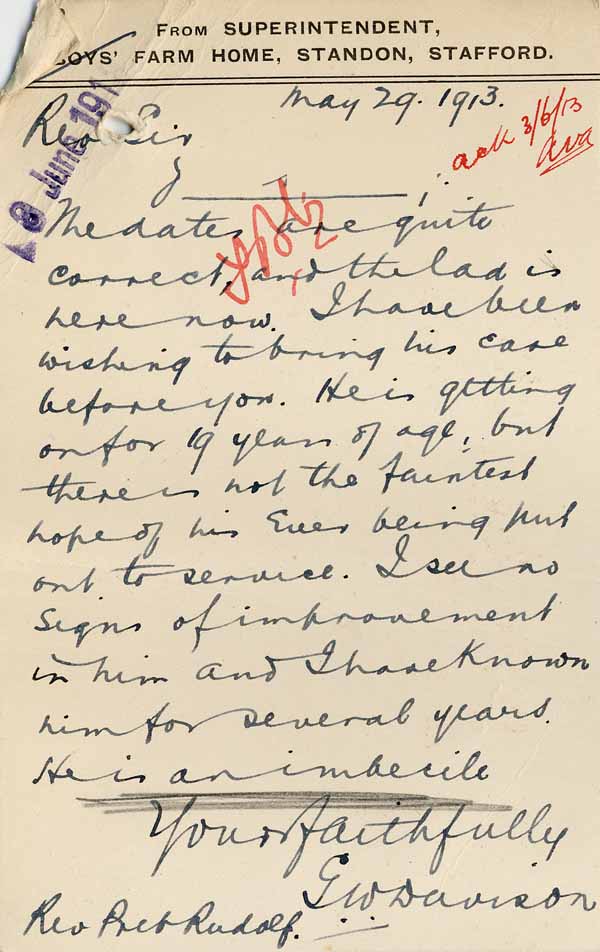 FROM SUPERINTENDENT,
BOYS' FARM HOME, STANDON, STAFFORD.
May 29. 1913.
Rev Sir
ack 3/6/13
June 191
The dates are quite
correct, and the lad is
here now. I have been
wishing to bring his case
before you. He is getting
on for 19 years of age, but
there is not the faintest
hope of his Ever being put
out to service. I see no
Signs of improvement
in him and I have Known
him for several years.
He is an imbecile
Yours faithfully
G W Davison
Rev Preb Rudolf.